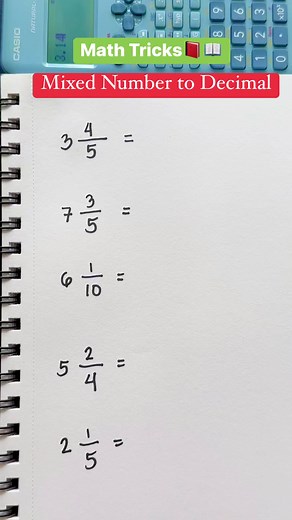 CASIO
3.14
Math Tricks
Mixed Number to Decimal
3 4/5 =
7 3/5 =
6 1/10 =
5 2/4 =
2 1/5 =